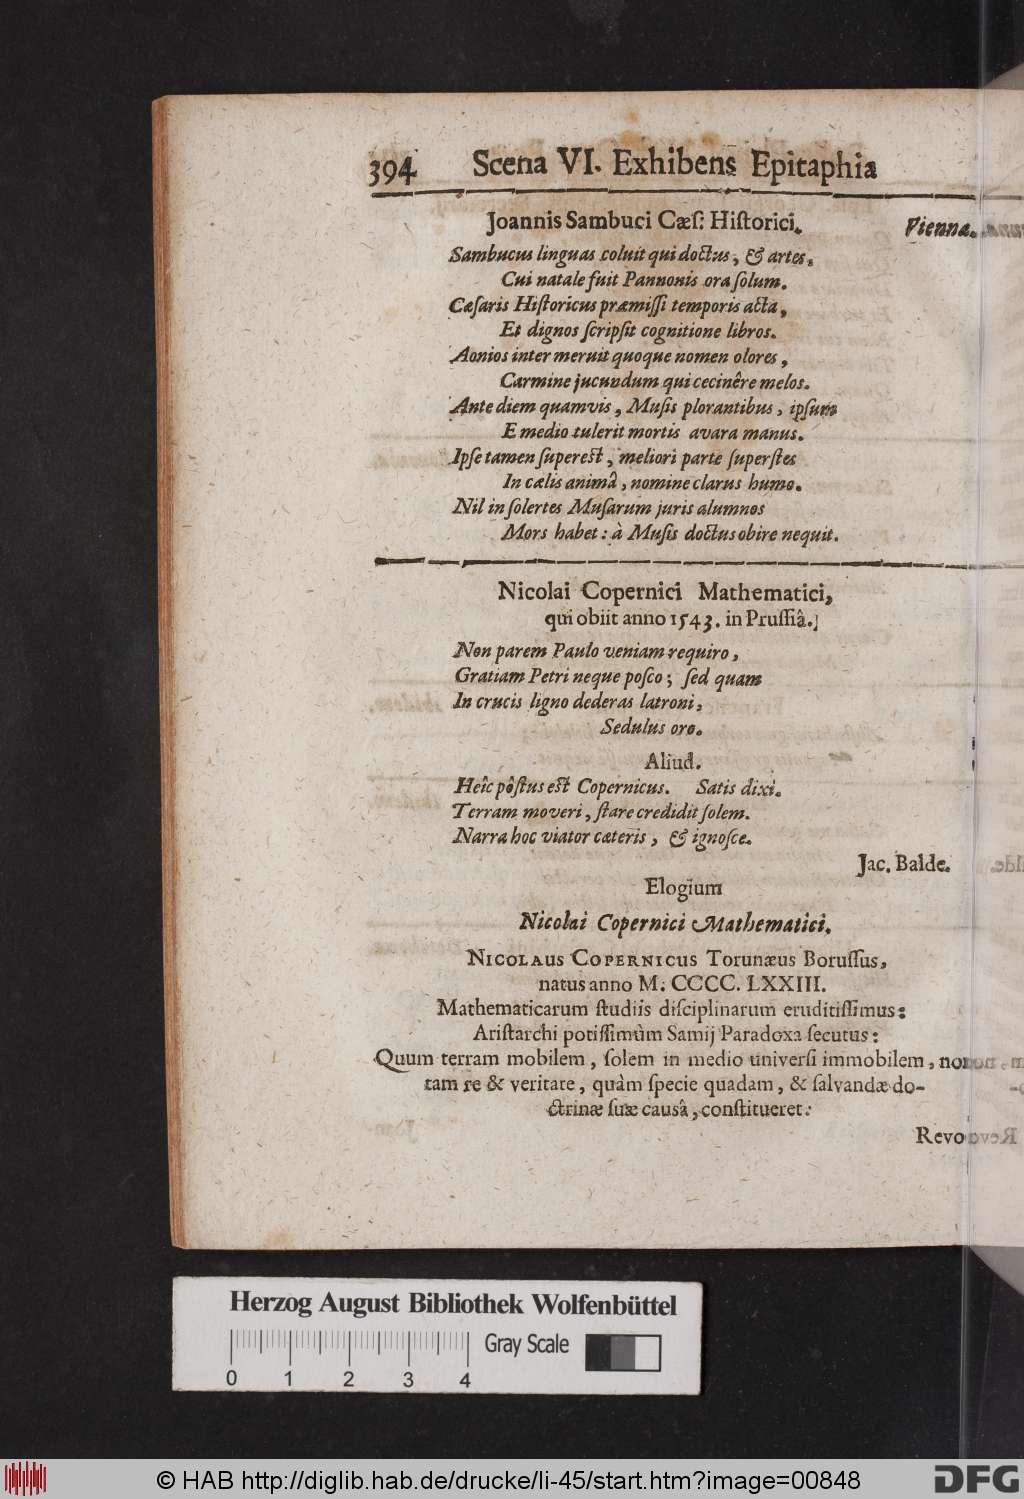 394 Scena VI. Exhibens Epitaphia
Joannis Sambuci Cæſ: Hiſtorici. Vienna.
Sambucus linguas coluit qui doctus, & artes,
Cui natale fuit Pannonis ora ſolum.
Cæſaris Hiſtoricus præmiſſi temporis acta,
Et dignos ſcripſit cognitione libros.
Aonios inter meruit quoque nomen olores,
Carmine jucundum qui cecinêre melos.
Ante diem quamvis, Muſis plorantibus, ipſum
E medio tulerit mortis avara manus.
Ipſe tamen ſupereſt, meliori parte ſuperſtes
In cælis animâ, nomine clarus humo.
Nil in ſolertes Muſarum juris alumnos
Mors habet: à Muſis doctus obire nequit.
Nicolai Copernici Mathematici,
qui obiit anno 1543. in Pruſſiâ.
Non parem Paulo veniam requiro,
Gratiam Petri neque poſco; ſed quam
In crucis ligno dederas latroni,
Sedulus oro.
Aliud.
Heîc pôſtus eſt Copernicus. Satis dixi.
Terram moveri, ſtare credidit ſolem.
Narra hoc viator cæteris, & ignoſce.
Jac. Balde.
Elogium
Nicolai Copernici Mathematici.
Nicolaus Copernicus Torunæus Boruſſus,
natus anno M. CCCC. LXXIII.
Mathematicarum ſtudiis diſciplinarum eruditiſſimus:
Ariſtarchi potiſſimùm Samij Paradoxa ſecutus:
Quum terram mobilem, ſolem in medio univerſi immobilem, non
tam re & veritate, quàm ſpecie quadam, & ſalvandæ do-
ctrinæ ſuæ causâ, conſtitueret:
Revo
Herzog August Bibliothek Wolfenbüttel
Gray Scale
0 1 2 3 4
© HAB http://diglib.hab.de/drucke/li-45/start.htm?image=00848
DFG